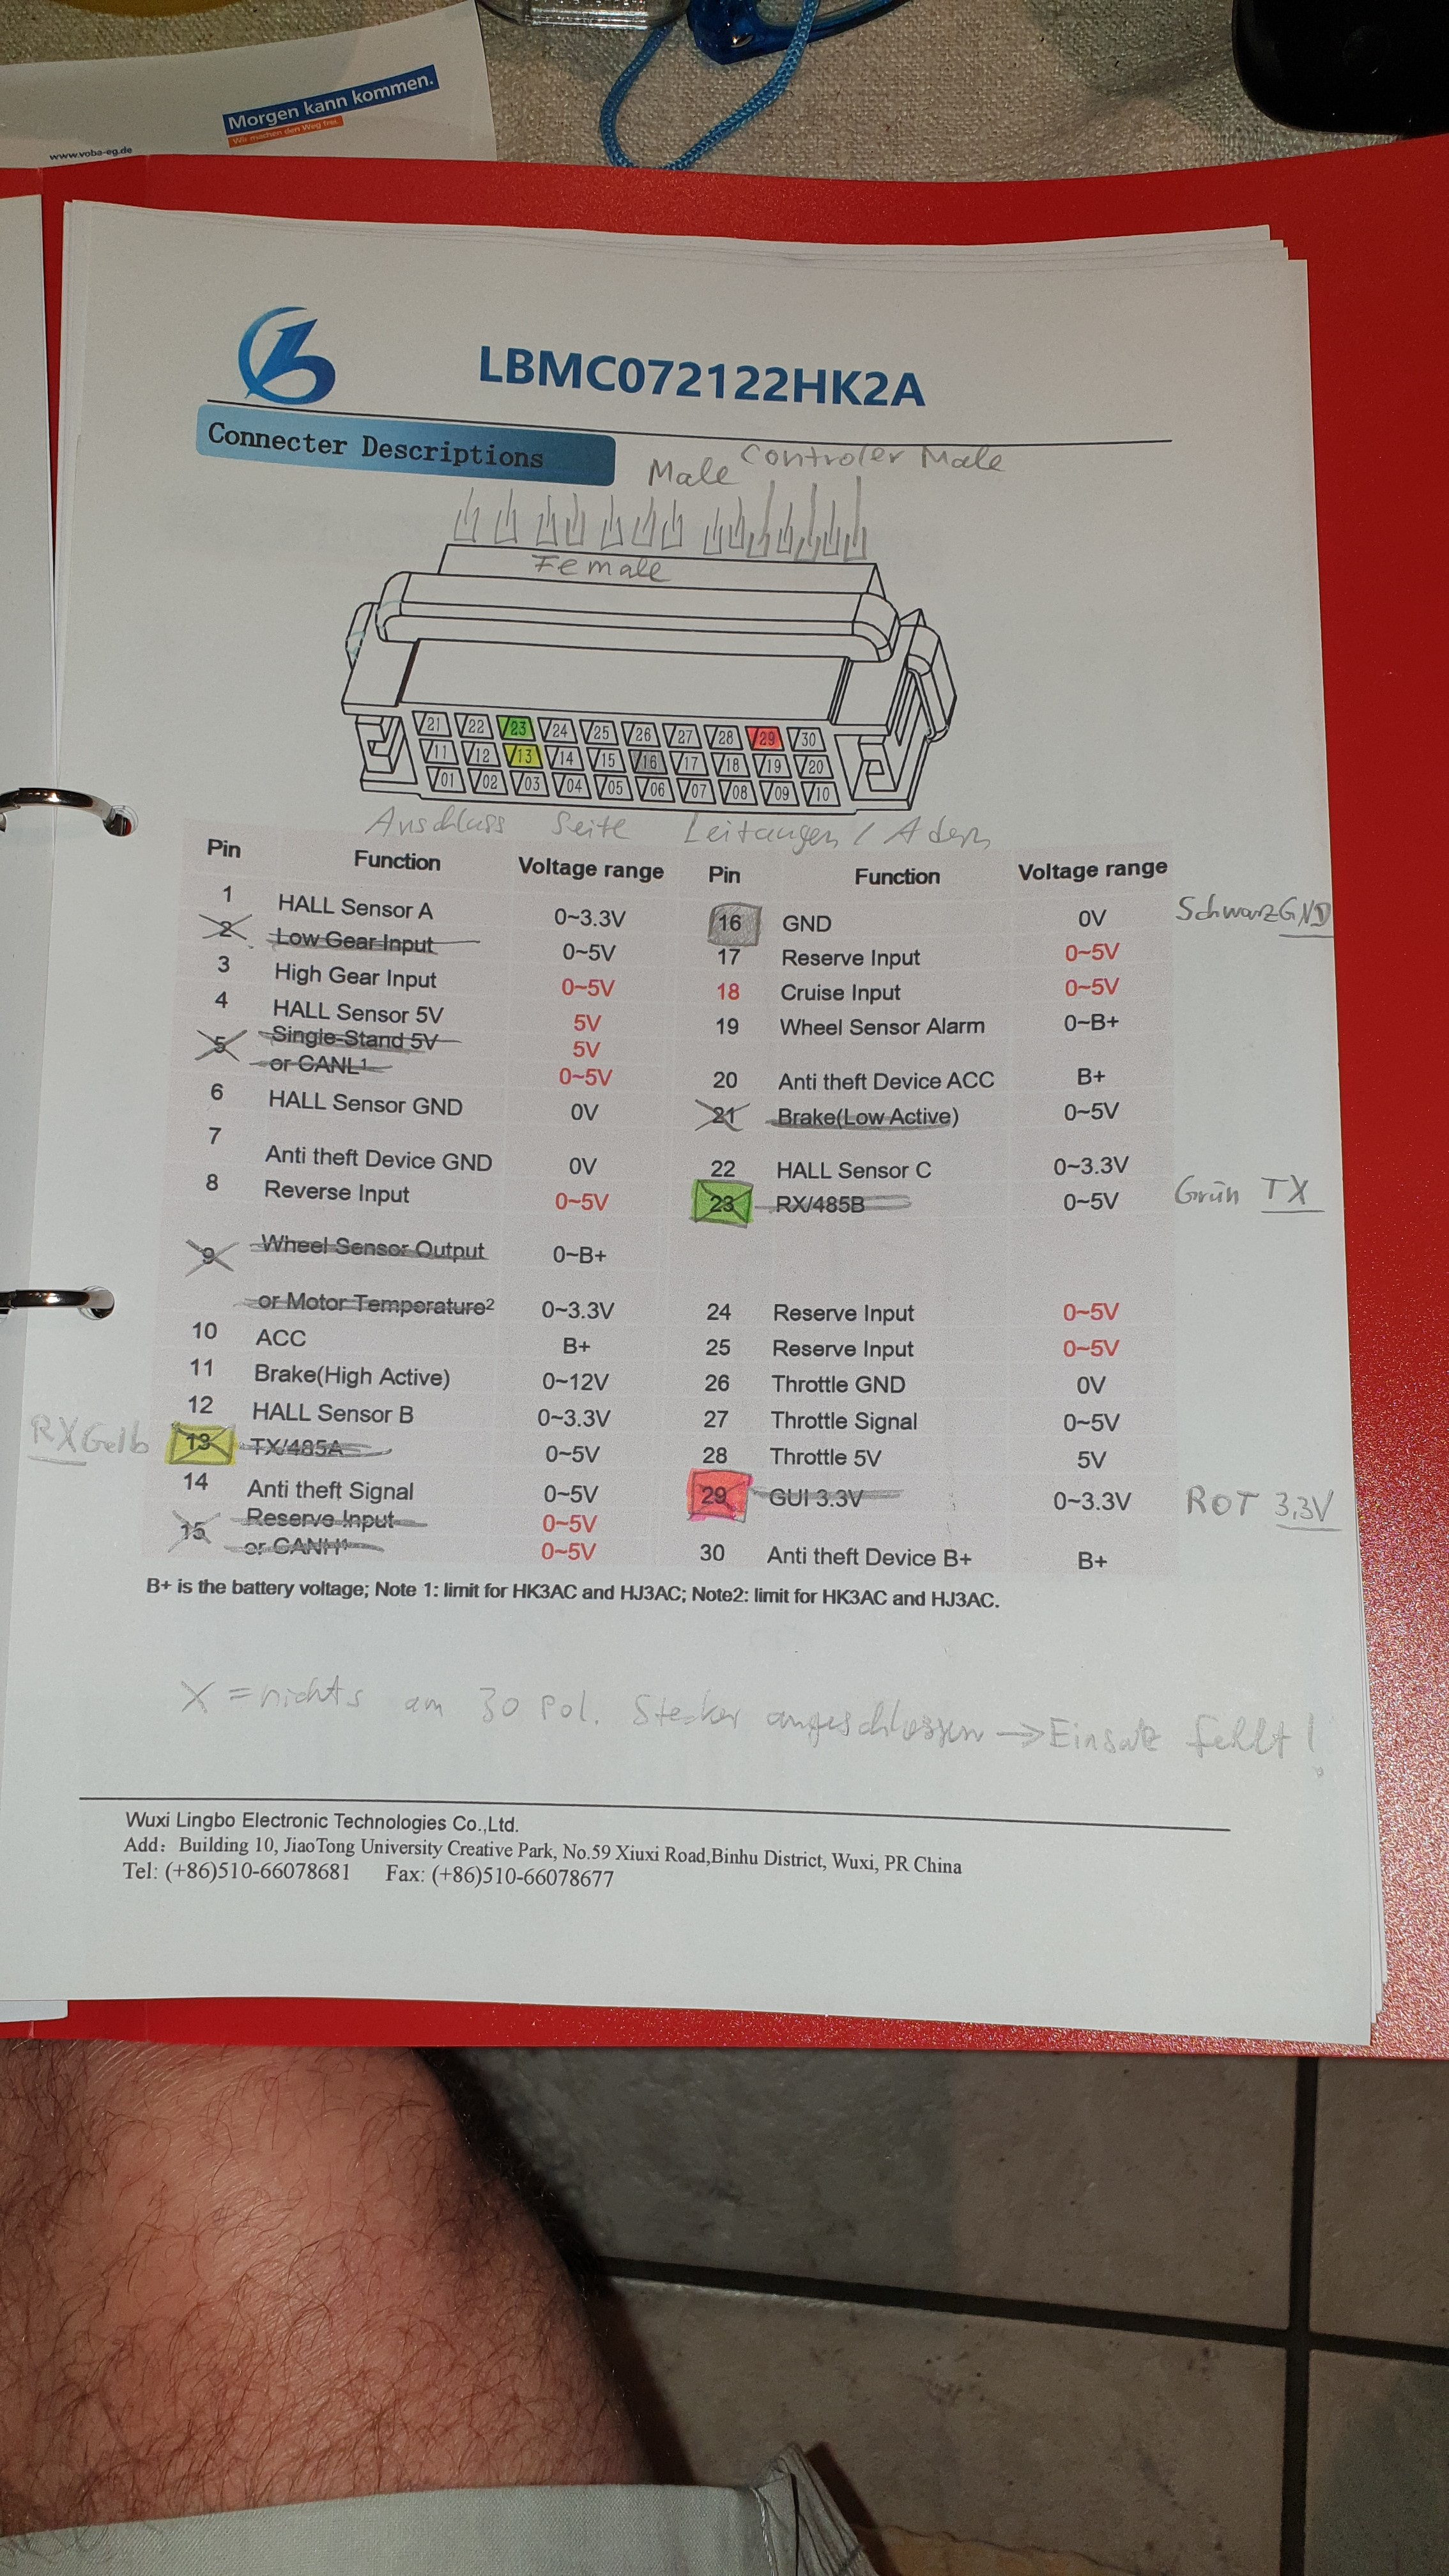 Morgen kann kommen.
Wir machen den Weg frei.
www.voba-eg.de
LBMC072122HK2A
Connecter Descriptions
Male Controler Male
Female
21 22 23 24 25 26 27 28 29 30
11 12 13 14 15 16 17 18 19 20
01 02 03 04 05 06 07 08 09 10
Anschluss Seite Leitungen / Adern
Pin Function Voltage range Pin Function Voltage range
1 HALL Sensor A 0~3.3V 16 GND 0V Schwarz GND
2 Low Gear Input 0~5V 17 Reserve Input 0~5V
3 High Gear Input 0~5V 18 Cruise Input 0~5V
4 HALL Sensor 5V 5V 19 Wheel Sensor Alarm 0~B+
5 Single-Stand 5V 5V
or CANL¹ 0~5V 20 Anti theft Device ACC B+
6 HALL Sensor GND 0V 21 Brake(Low Active) 0~5V
7 Anti theft Device GND 0V 22 HALL Sensor C 0~3.3V
8 Reverse Input 0~5V 23 RX/485B 0~5V Grün TX
9 Wheel Sensor Output 0~B+
or Motor Temperature² 0~3.3V 24 Reserve Input 0~5V
10 ACC B+ 25 Reserve Input 0~5V
11 Brake(High Active) 0~12V 26 Throttle GND 0V
12 HALL Sensor B 0~3.3V 27 Throttle Signal 0~5V
RX Gelb 13 TX/485A 0~5V 28 Throttle 5V 5V
14 Anti theft Signal 0~5V 29 GUI 3.3V 0~3.3V ROT 3,3V
15 Reserve Input 0~5V
or CANH¹ 0~5V 30 Anti theft Device B+ B+
B+ is the battery voltage; Note 1: limit for HK3AC and HJ3AC; Note2: limit for HK3AC and HJ3AC.
X = nichts am 30 Pol. Stecker angeschlossen → Einsatz fehlt!
Wuxi Lingbo Electronic Technologies Co.,Ltd.
Add: Building 10, JiaoTong University Creative Park, No.59 Xiuxi Road,Binhu District, Wuxi, PR China
Tel: (+86)510-66078681 Fax: (+86)510-66078677